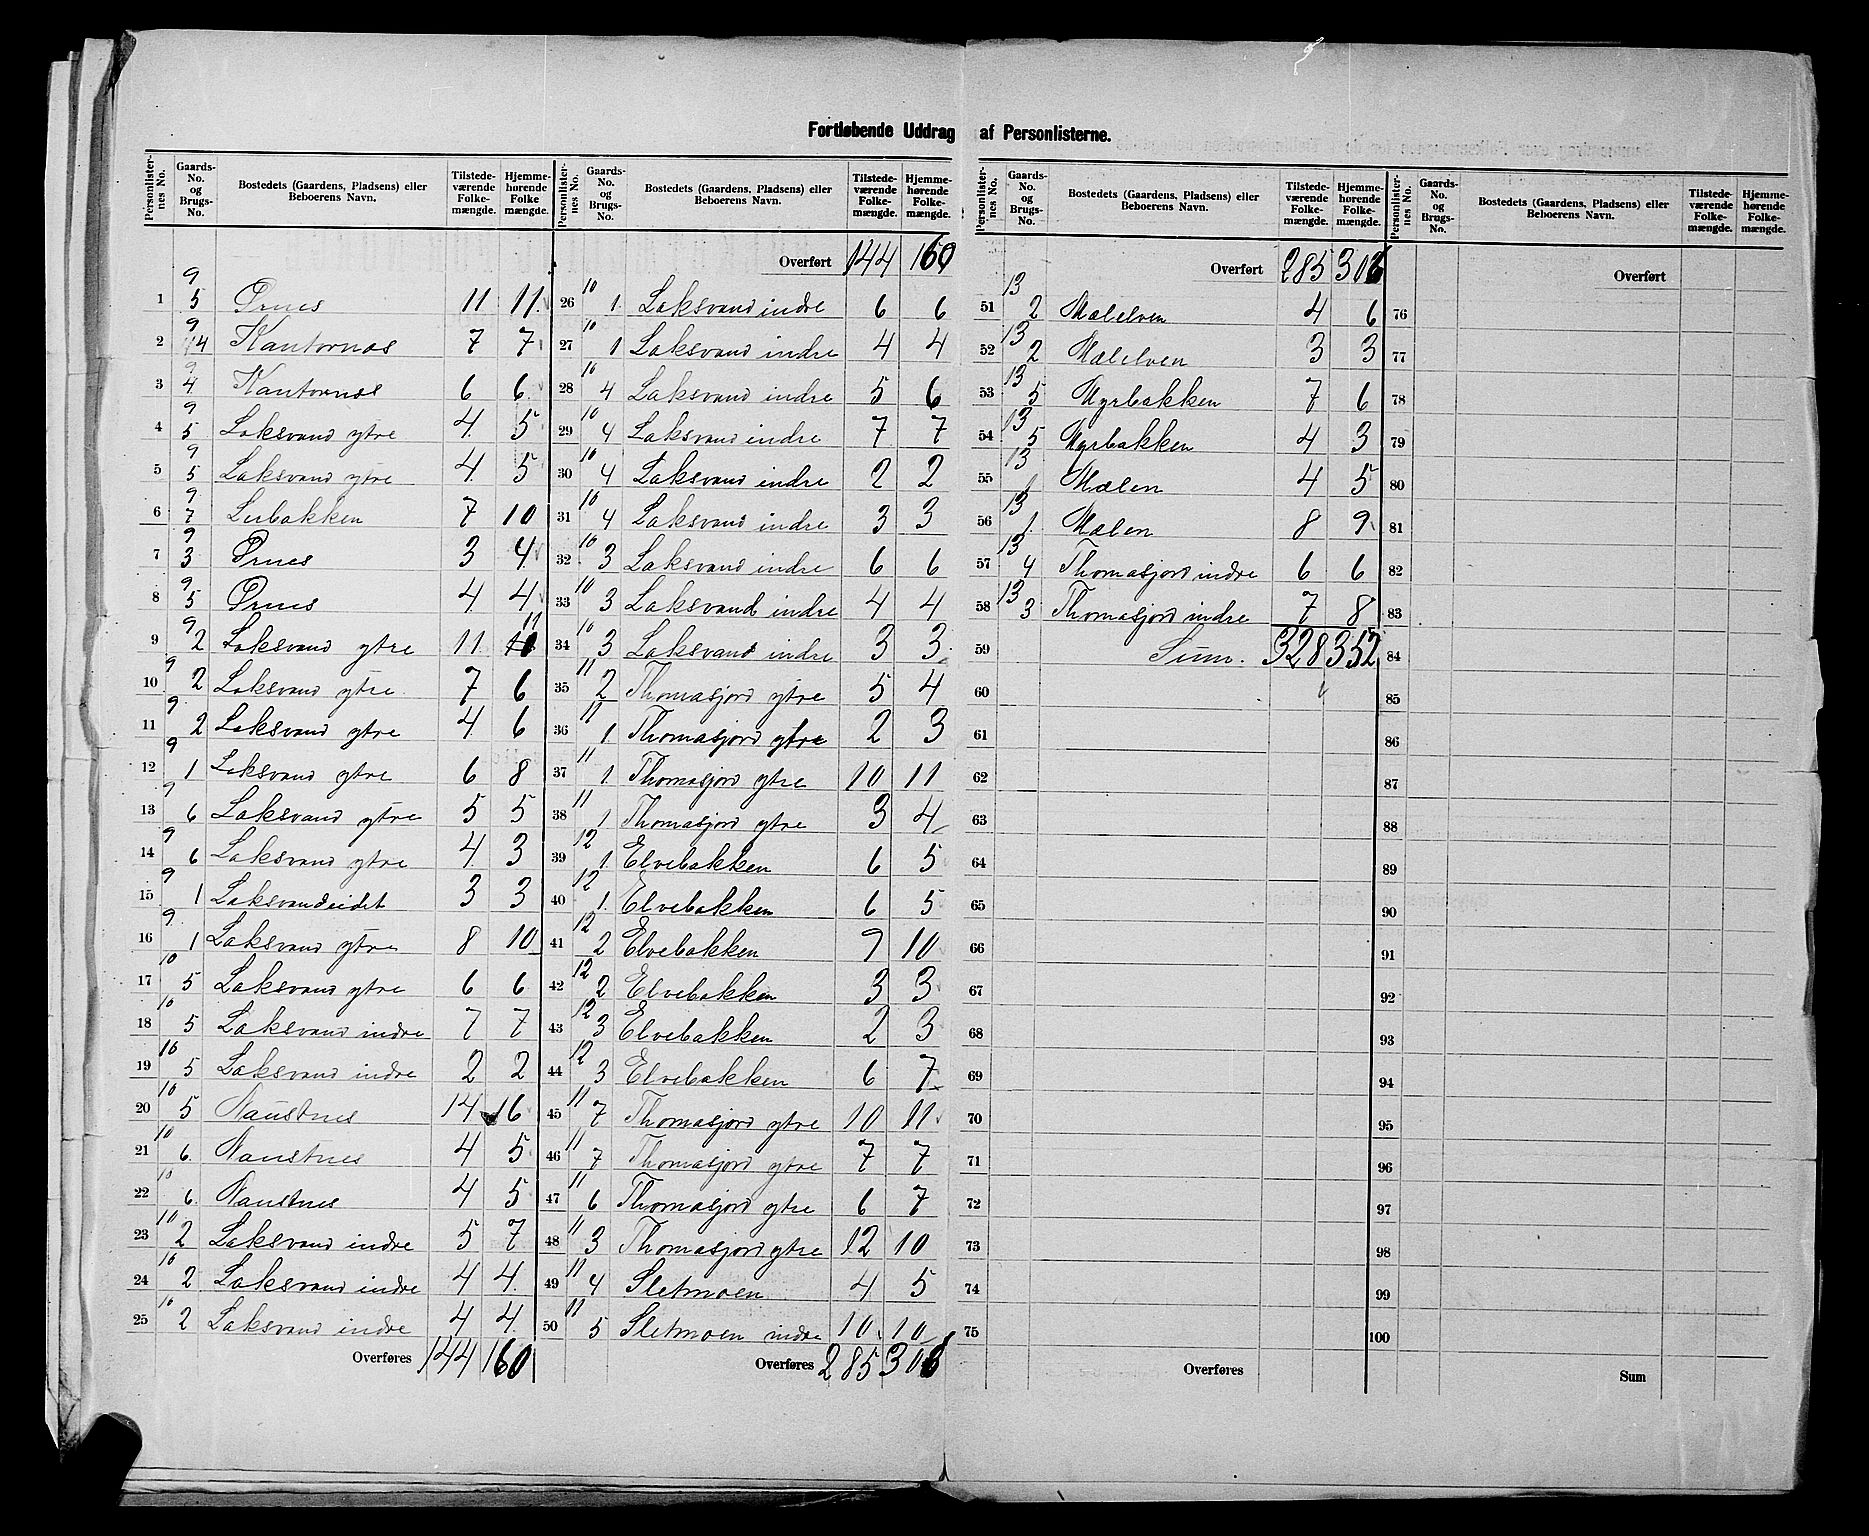 Fortløbende Uddrag af Personlisterne.
Personlister-nes No. Gaards-No. og Brugs-No. Bostedets (Gaardens, Pladsens) eller Beboerens Navn. Tilstede-værende Folke-mængde. Hjemme-hørende Folke mængde.
1 9 5 Ørnes 11 11
2 9 4 Kantornes 7 7
3 9 4 Kantornes 6 6
4 9 5 Laksvand ytre 4 5
5 9 5 Laksvand ytre 4 5
6 9 7 Lerbakken 7 10
7 9 3 Ørnes 3 4
8 9 5 Ørnes 4 4
9 9 2 Laksvand ytre 11 11
10 9 2 Laksvand ytre 7 6
11 9 2 Laksvand ytre 4 6
12 9 1 Laksvand ytre 6 8
13 9 6 Laksvand ytre 5 5
14 9 6 Laksvand ytre 4 3
15 9 1 Laksvandeidet 3 3
16 9 1 Laksvand ytre 8 10
17 10 5 Laksvand ytre 6 6
18 10 5 Laksvand indre 7 7
19 10 5 Laksvand indre 2 2
20 10 5 Naustnes 14 16
21 10 6 Naustnes 4 5
22 10 6 Naustnes 4 5
23 10 2 Laksvand indre 5 7
24 10 2 Laksvand indre 4 4
25 10 2 Laksvand indre 4 4
Overføres 144 160
Personlister-nes No. Gaards-No. og Brugs-No. Bostedets (Gaardens, Pladsens) eller Beboerens Navn. Tilstede-værende Folke-mængde. Hjemme-hørende Folke-mængde.
Overført 144 160
26 10 1 Laksvand indre 6 6
27 10 1 Laksvand indre 4 4
28 10 4 Laksvand indre 5 6
29 10 4 Laksvand indre 7 7
30 10 4 Laksvand indre 2 2
31 10 4 Laksvand indre 3 3
32 10 3 Laksvand indre 6 6
33 10 3 Laksvand indre 4 4
34 10 3 Laksvand indre 3 3
35 11 2 Thomasjord ytre 5 4
36 11 1 Thomasjord ytre 2 3
37 11 1 Thomasjord ytre 10 11
38 11 1 Thomasjord ytre 3 4
39 12 1 Elvebakken 6 5
40 12 1 Elvebakken 6 5
41 12 2 Elvebakken 9 10
42 12 2 Elvebakken 3 3
43 12 3 Elvebakken 2 3
44 12 3 Elvebakken 6 7
45 11 7 Thomasjord ytre 10 11
46 11 7 Thomasjord ytre 7 7
47 11 6 Thomasjord ytre 6 7
48 11 3 Thomasjord ytre 12 10
49 11 4 Sletmoen 4 5
50 11 5 Sletmoen indre 10 10
Overføres 285 306
Personlister-nes No. Gaards-No. og Brugs-No. Bostedets (Gaardens, Pladsens) eller Beboerens Navn. Tilstede-værende Folke-mængde. Hjemme-hørende Folke-mængde.
Overført 285 306
51 13 2 Mælelven 4 6
52 13 2 Mælelven 3 3
53 13 5 Myrbakken 7 6
54 13 5 Myrbakken 4 3
55 13 1 Mælen 4 5
56 13 1 Mælen 8 9
57 13 4 Thomasjord indre 6 6
58 13 3 Thomasjord indre 7 8
59 Sum. 328 352
60
61
62
63
64
65
66
67
68
69
70
71
72
73
74
75
Overføres
Personlister-nes No. Gaards-No. og Brugs-No. Bostedets (Gaardens, Pladsens) eller Beboerens Navn. Tilstede-værende Folke-mængde. Hjemme-hørende Folke-mængde.
Overført
76
77
78
79
80
81
82
83
84
85
86
87
88
89
90
91
92
93
94
95
96
97
98
99
100
Sum